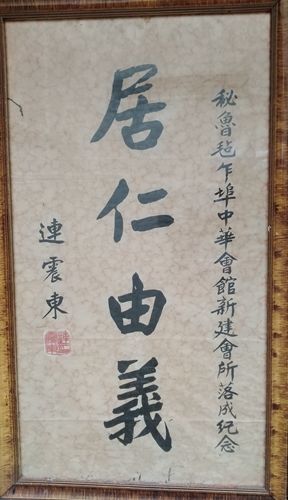 秘魯毡乍埠中華會館新建會所落成紀念
居仁由義
連震東